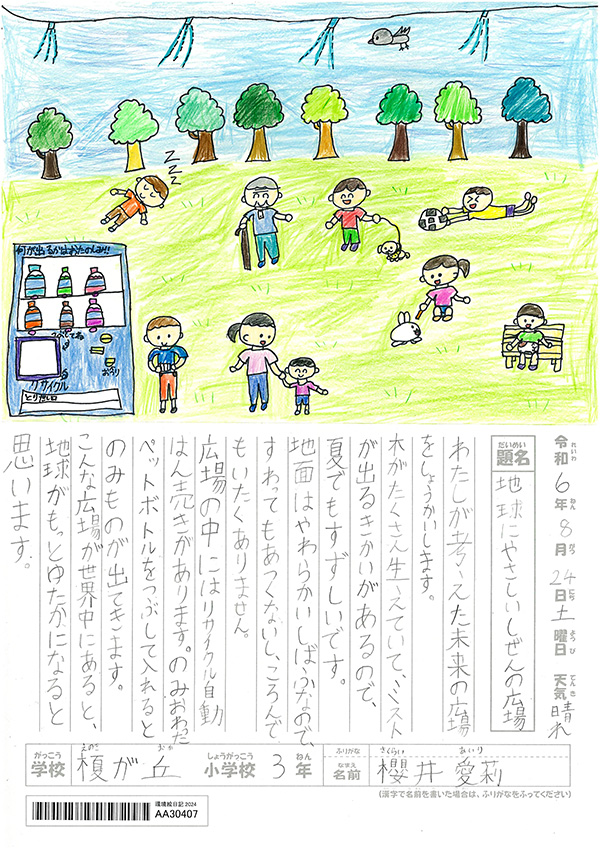 何が出るかはおたのしみ!!
つぶしてね
リサイクル
とりだし口
Z Z Z
令和6年8月24日土曜日 天気 晴れ
れいわ ねん がつ にち ようび てんき
だいめい
題名 地球にやさしいしぜんの広場
わたしが考えた未来の広場
をしょうかいします。
木がたくさん生えていて、ミスト
が出るきかいがあるので、
夏でもすずしいです。
地面はやわらかいしばふなので、
すわってもあつくないし、ころんで
もいたくありません。
広場の中にはリサイクル自動
はん売きがあります。のみおわった
ペットボトルをつぶして入れると
のみものが出てきます。
こんな広場が世界中にあると、
地球がもっとゆたかになると
思います。
がっこう えのき おか しょうがっこう ねん
学校 榎が丘 小学校 3年
ふりがな さくらい あいり
なまえ
名前 櫻井 愛莉
(漢字で名前を書いた場合は、ふりがなをふってください)
環境絵日記2024
AA30407